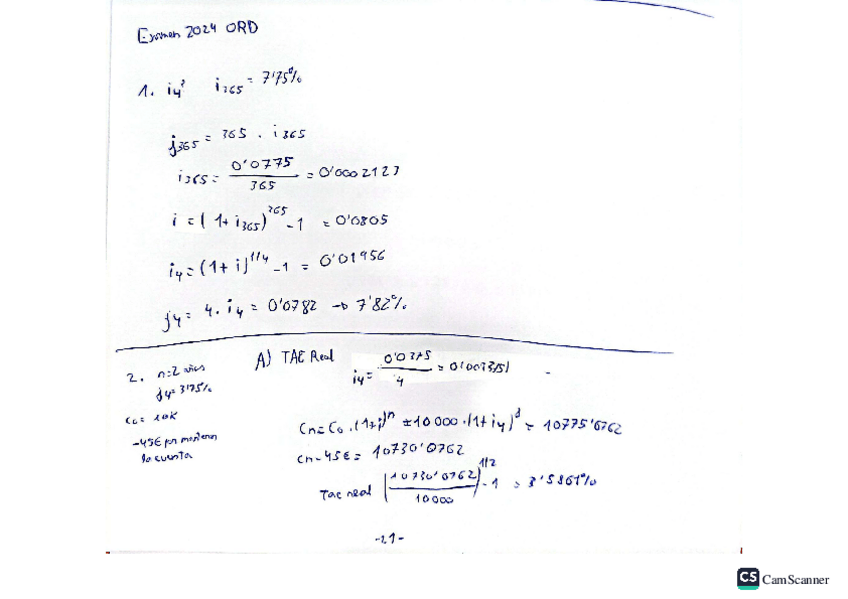 Examen 2024 ORD
1. i4? i365 = 7'75%
j365 = 365 . i365
i365 = 0'0775 / 365 = 0'0002123
i = (1+i365)^365 - 1 = 0'0805
i4 = (1+i)^1/4 - 1 = 0'01956
j4 = 4 . i4 = 0'0782 → 7'82%
2. n=2 años
j4= 3'75%
C0 = 10K
-45€ por mantener
la cuenta
A) TAE Real
i4 = 0'0375 / 4 =
Cn = C0 . (1+i)^n = 10000 . (1+i4)^8 = 10775'0762
Cn - 45€ = 10730'0762
Tae real (10730'0762 / 10000)^1/2 - 1 = 3'5861%
-21-
CS CamScanner